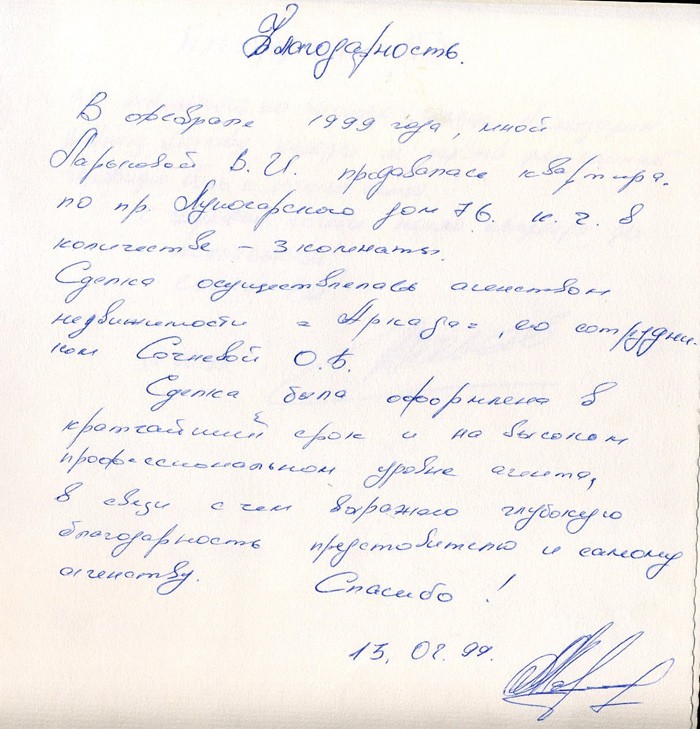 Благодарность.
В феврале 1999 года, мной
Ларьковой В. И. продавалась квартира.
по пр. Луночарского дом 76. к. 2. в
количестве – 3 комнаты.
Сделка осуществлялась агенством
недвижимости "Аркада", его сотрудни-
ком Сочневой О.Б.
Сделка была оформлена в
кратчайший срок и на высоком
профессиональном уровне агента,
в связи с чем выражаю глубокую
благодарность представителю и самому
агенству. Спасибо!
15. 02. 99.